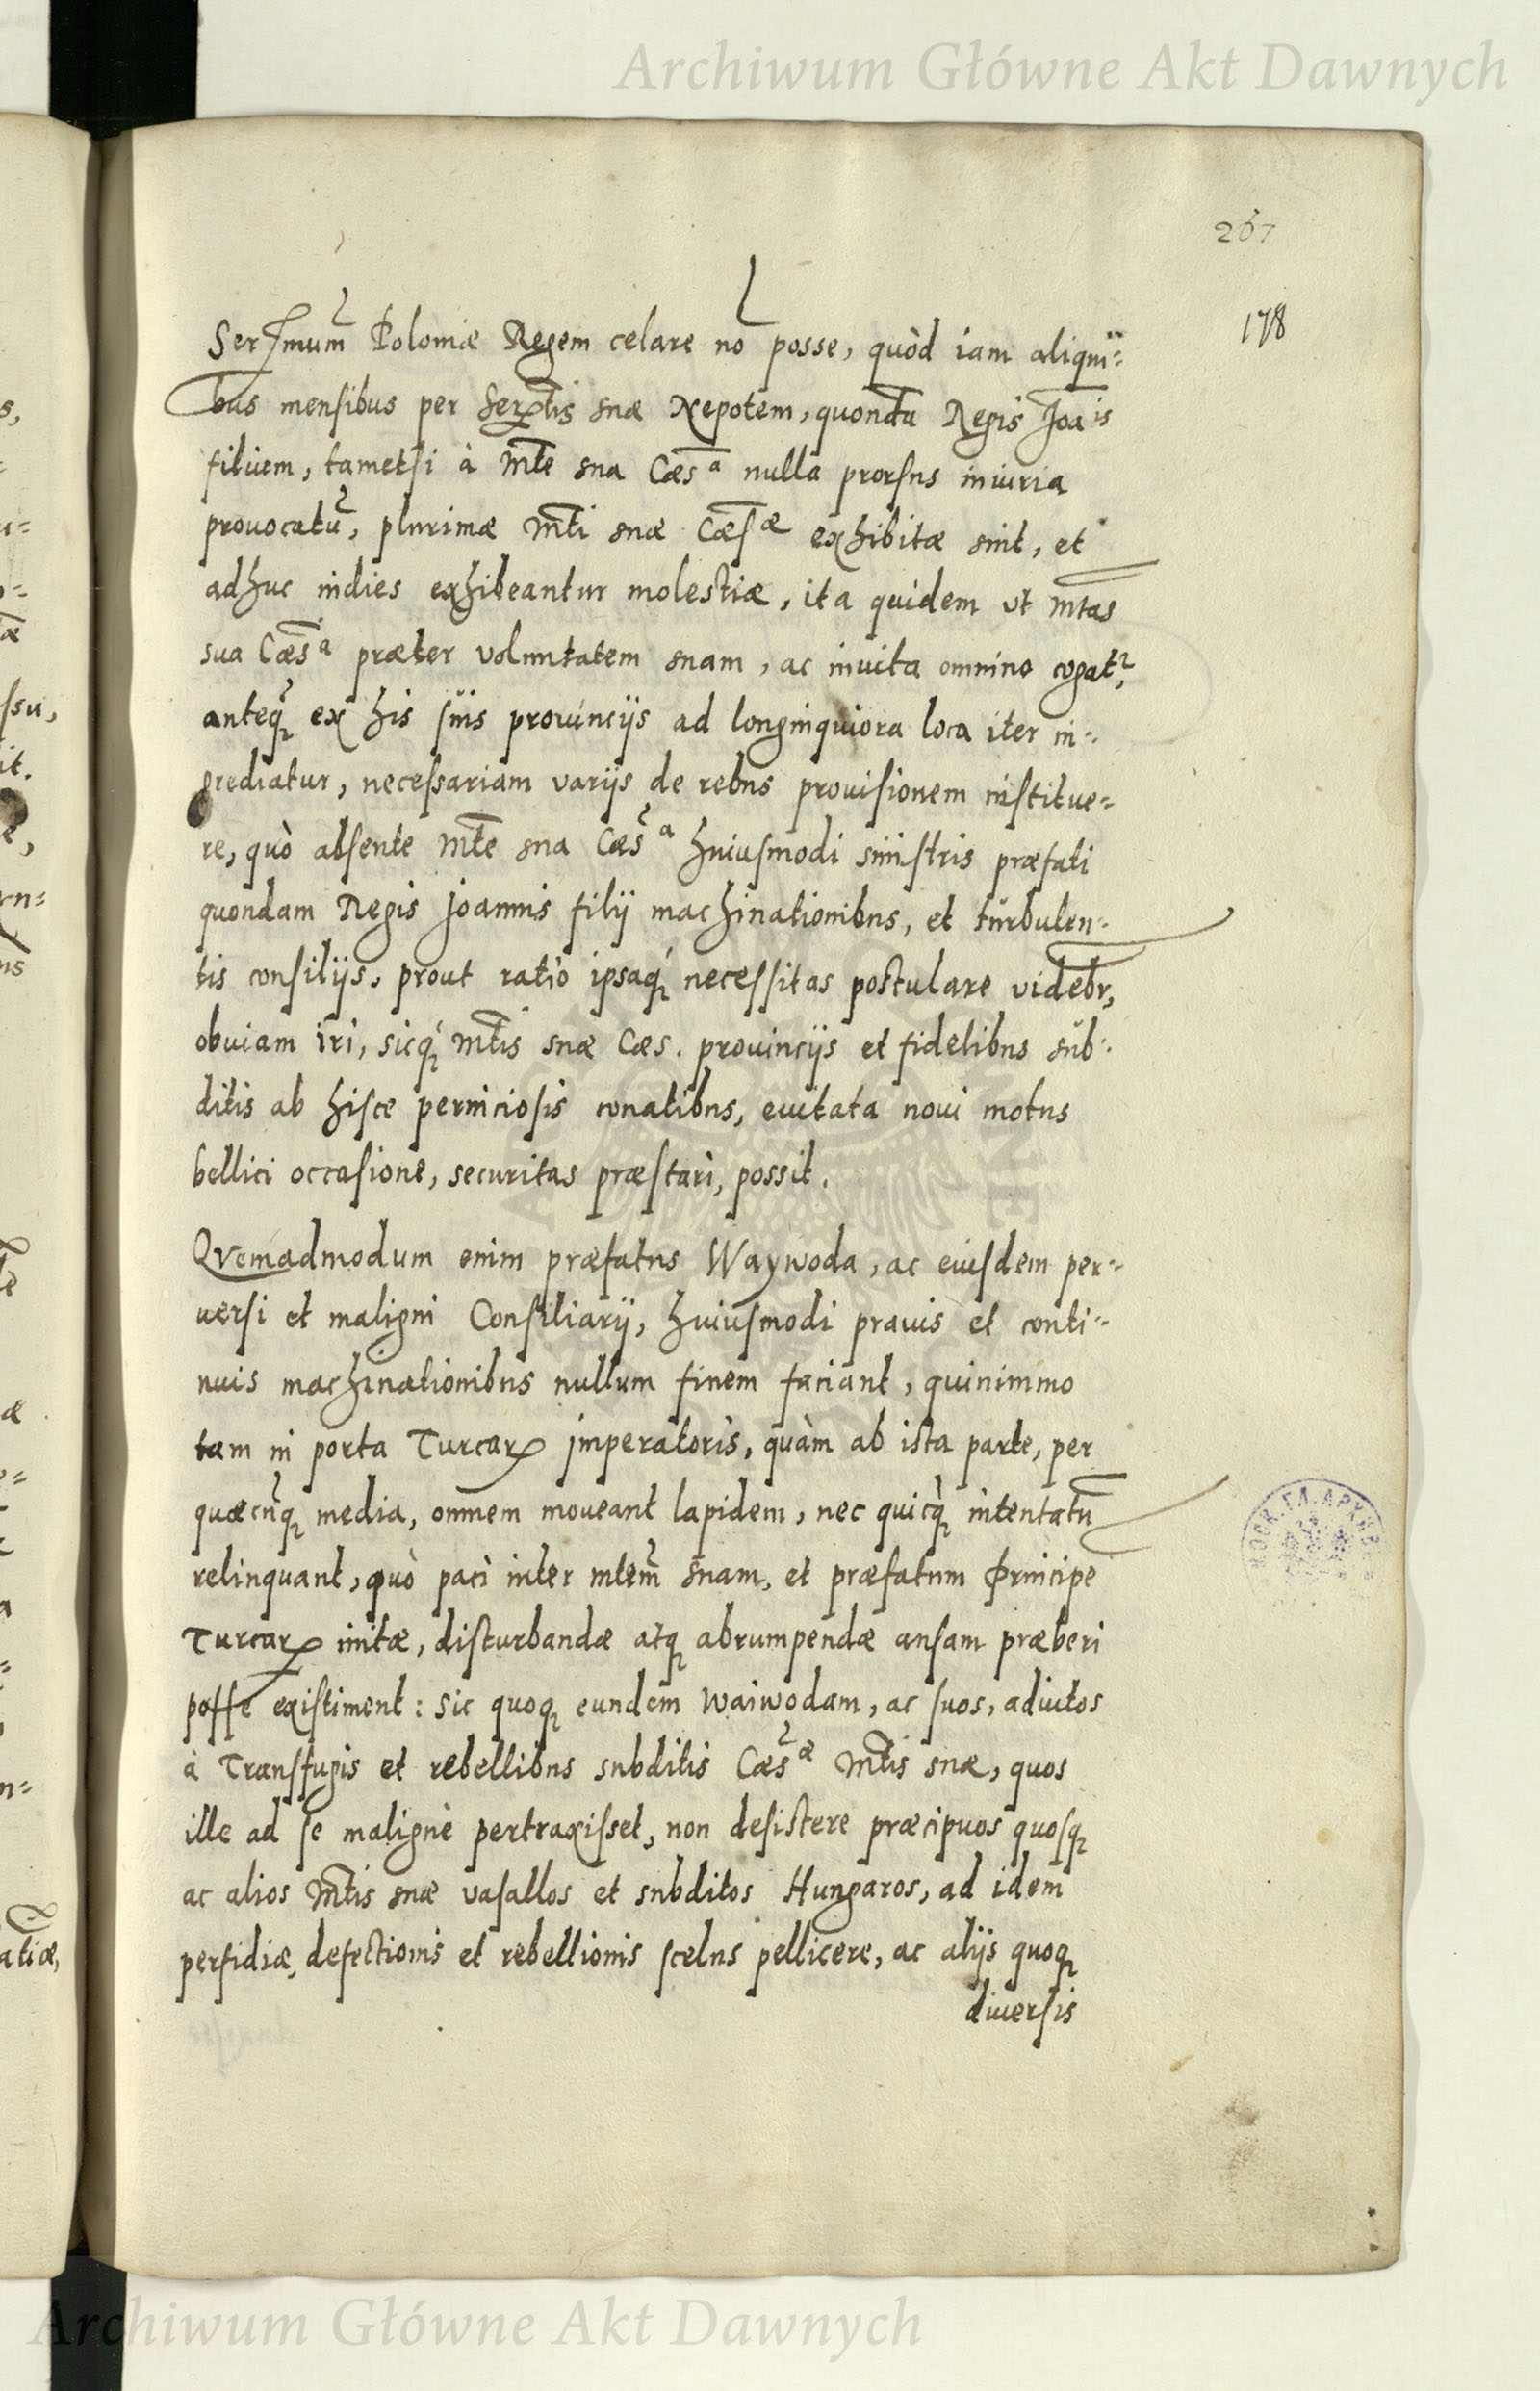 Archiwum Główne Akt Dawnych
267
178
Sermum Poloniæ Regem celare nō posse, quòd iam aliqui=
bus mensibus per Sertis suæ Nepotem, quondā Regis Joāis
filium, tametsi à Mte sua Cæsa nulla prorsus iniuria
provocatū, plurimæ Mti suæ Cæsæ exhibitæ sint, et
adhuc indies exhibeantur molestiæ, ita quidem ut Mtas
sua Cæsa præter voluntatem suam, ac invita omnino cogatr,
anteq̃ ex his suis prouincijs ad longinquiora loca iter in=
grediatur, necessariam varijs de rebus prouisionem instituе=
re, quò absente Mte sua Cæsa huiusmodi sinistris præfati
quondam Regis Joannis filij machinationibus, et turbulen=
tis consilijs, prout ratio ipsaq́ necessitas postulare videbr,
obuiam iri, sicq́ Mtis suæ Cæs. prouincijs et fidelibus sub=
ditis ab hisce perniciosis conatibus, euitata noui motus
bellici occasione, securitas præstari, possit.
Quemadmodum enim præfatus Waywoda, ac eiusdem per=
uersi et maligni Consiliarij, huiusmodi prauis et conti=
nuis machinationibus nullum finem faciant, quinimmo
tam in porta Turcarꝝ imperatoris, quàm ab ista parte, per
quæcūq media, omnem moueant lapidem, nec quicq̃ intentatū
relinquant, quò paci inter Mtem suam, et præfatum Principē
Turcarꝝ initæ, disturbandæ atq abrumpendæ ansam præberi
posse existiment: Sic quoq eundem Waiwodam, ac suos, adiutos
à Transfugis et rebellibus subditis Cæsæ Mtis suæ, quos
ille ad se malignè pertraxisset, non desistere præcipuos quosq
ac alios Mtis suæ vasallos et subditos Hungaros, ad idem
perfidiæ, defectionis et rebellionis scelus pellicere, ac alijs quoq
diuersis
Archiwum Główne Akt Dawnych